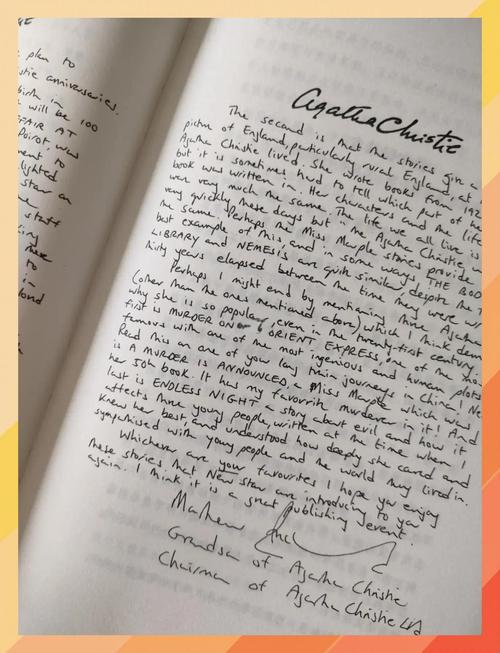 plan to
anniversaries.
birth in 100
will be
AFFAIR AT
Poirot. was
to
lighted
star an
staff
these
to
in
Agatha Christie
The second is that the stories give a
picture of England, particularly rural England, at
Agatha Christie lived. She wrote books from 192
but it is sometimes hard to tell which part of her
book was written in. Her characters and the life
were very much the same. The life we all live is
very quickly these days but in the Agatha Christie
the same. Perhaps the Miss Marple stories provide
best example of this, and in some ways THE BOD
LIBRARY and NEMESIS are quite similar despite the
thirty years elapsed between the time they were wr
Perhaps I might end by mentioning three Agatha
(other than the ones mentioned above) which I think dem
why she is so popular, even in the twenty-first century.
first is MURDER ON ORIENT EXPRESS, one of the mo
famous with one of the most ingenious and human plots
Read this on one of your long train journeys in China! Ne
is A MURDER IS ANNOUNCED, a Miss Marple which was
her 50th book. It has my favourite murderer in it! And
last is ENDLESS NIGHT a story about evil and how it
affects three young people, written at the time when I
knew her best, and understood how deeply she cared and
sympathised with young people and the world they lived in.
Whichever are your favourites I hope you enjoy
these stories that New Star are introducing to you
again. I think it is a great publishing event.
Mathew
Grandson of Agatha Christie
Chairman of Agatha Christie Ltd